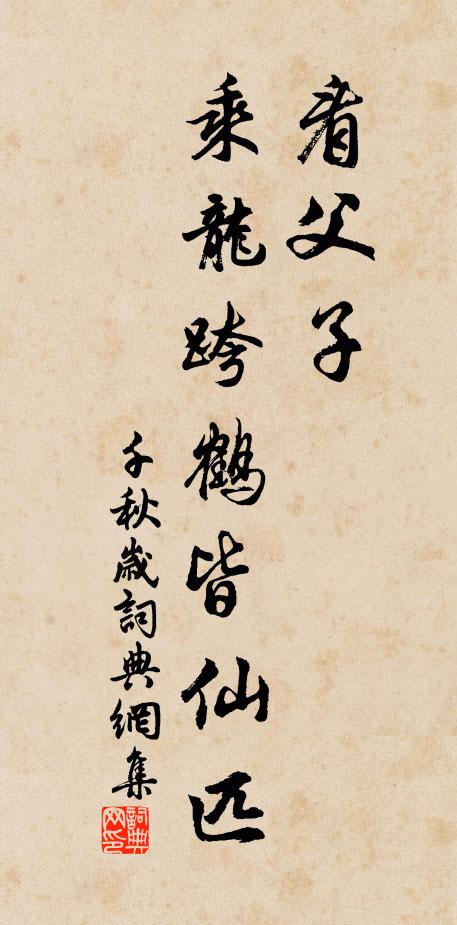 看父子
乘龍跨鶴皆仙匹
千秋歲詞典網集
詞典网印